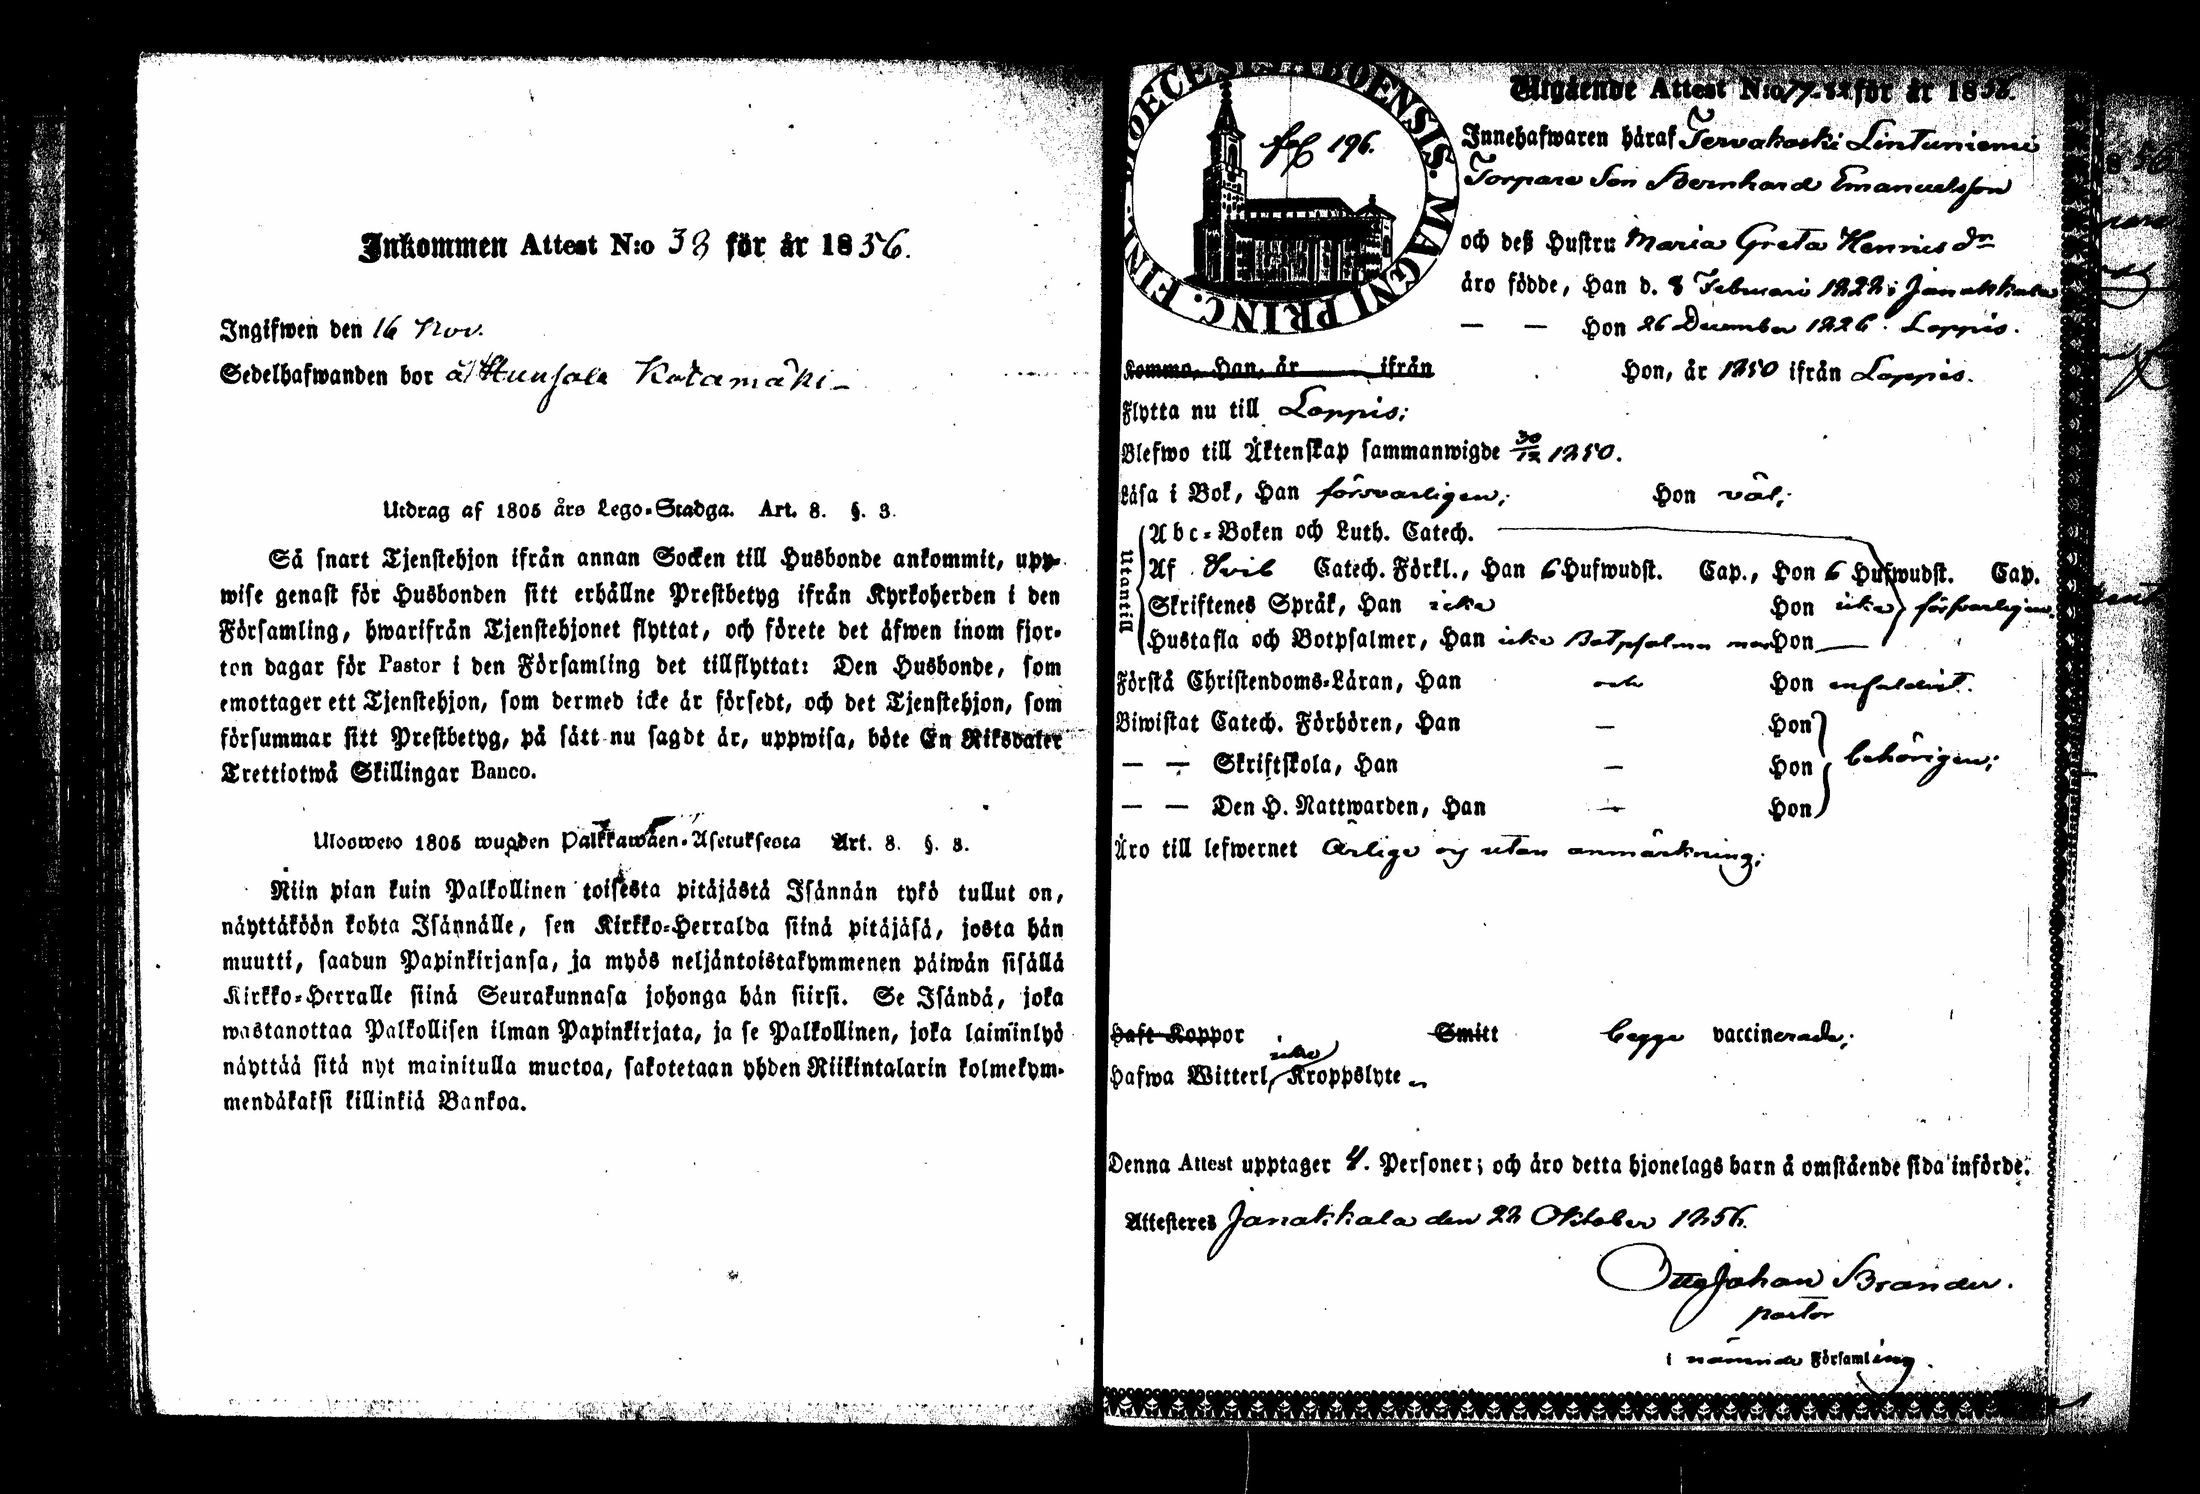 Inkommen Attest N:o 38 för år 1856.
Ingifwen den 16 Nov.
Sedelhafwanden bor å Hunsala Kotamäki
Utdrag af 1805 års Lego-Stadga. Art. 8. §. 3.
Så snart Tjenstehjon ifrån annan Socken till Husbonde ankommit, upp-
wise genast för Husbonden sitt erhållne Prestbetyg ifrån Kyrkoherden i den
Församling, hwarifrån Tjenstehjonet flyttat, och förete det äfwen inom fjor-
ton dagar för Pastor i den Församling det tillflyttat: Den Husbonde, som
emottager ett Tjenstehjon, som dermed icke är försedt, och det Tjenstehjon, som
försummar sitt Prestbetyg, på sätt nu sagdt är, uppwisa, böte En Riksdaler
Trettiotwå Skillingar Banco.
Ulosweto 1805 wuoden Palkkawäen-Asetuksesta Art. 8. §. 3.
Niin pian kuin Palkollinen toisesta pitäjästä Isännän tykö tullut on,
näyttäköön kohta Isännälle, sen Kirkko-Herralda siinä pitäjäsä, josta hän
muutti, saadun Papinkirjansa, ja myös neljäntoistakymmenen päiwän sisällä
Kirkko-Herralle siinä Seurakunnasa johonga hän siirsi. Se Isändä, joka
wastanottaa Palkollisen ilman Papinkirjata, ja se Palkollinen, joka laiminlyö
näyttää sitä nyt mainitulla muotoa, sakotetaan yhden Riikintalarin kolmekym-
mendäkaksi killinkiä Bankoa.
DIOECESIS ABOENSIS. MAGNI PRINC. FINL.
fol 196.
Utgående Attest N:o 79-82 för år 1856.
Innehafwaren häraf Tervakoski Lintuniemi
Torpare Son Bernhard Emanuelsson
och deß Hustru Maria Greta Henricsdr
äro födde, Han d. 8 Februari 1822 i Janakkala
— — Hon 26 December 1826. Loppis.
Kommo, Han, år ifrån Hon, år 1850 ifrån Loppis.
Flytta nu till Loppis;
Blefwo till Äktenskap sammanwigde 30/12 1850.
Läsa i Bok, Han försvarligen; Hon väl;
Utantill
Abc-Boken och Luth. Catech.
Af Svib Catech. Förkl., Han 6 Hufwudst. Cap., Hon 6 Hufwudst. Cap.
Skriftenes Språk, Han icke Hon icke försvarligen.
Hustafla och Botpsalmer, Han icke Botpsalmer Hon —
Förstå Christendoms-Läran, Han och Hon enfaldigt.
Biwistat Catech. Förhören, Han — Hon
— — Skriftskola, Han — Hon behörigen;
— — Den H. Nattwarden, Han — Hon
Äro till lefwernet Ärlige og utan anmärkning;
Haft Koppor Smitt begge vaccinerade;
Hafwa Witterl, icke Kroppslyte
Denna Attest upptager 4. Personer; och äro detta hjonelags barn å omstående sida införde.
Attesteres Janakkala den 22 Oktober 1856.
Otto Johan Brander.
pastor
i nämnde Församling.